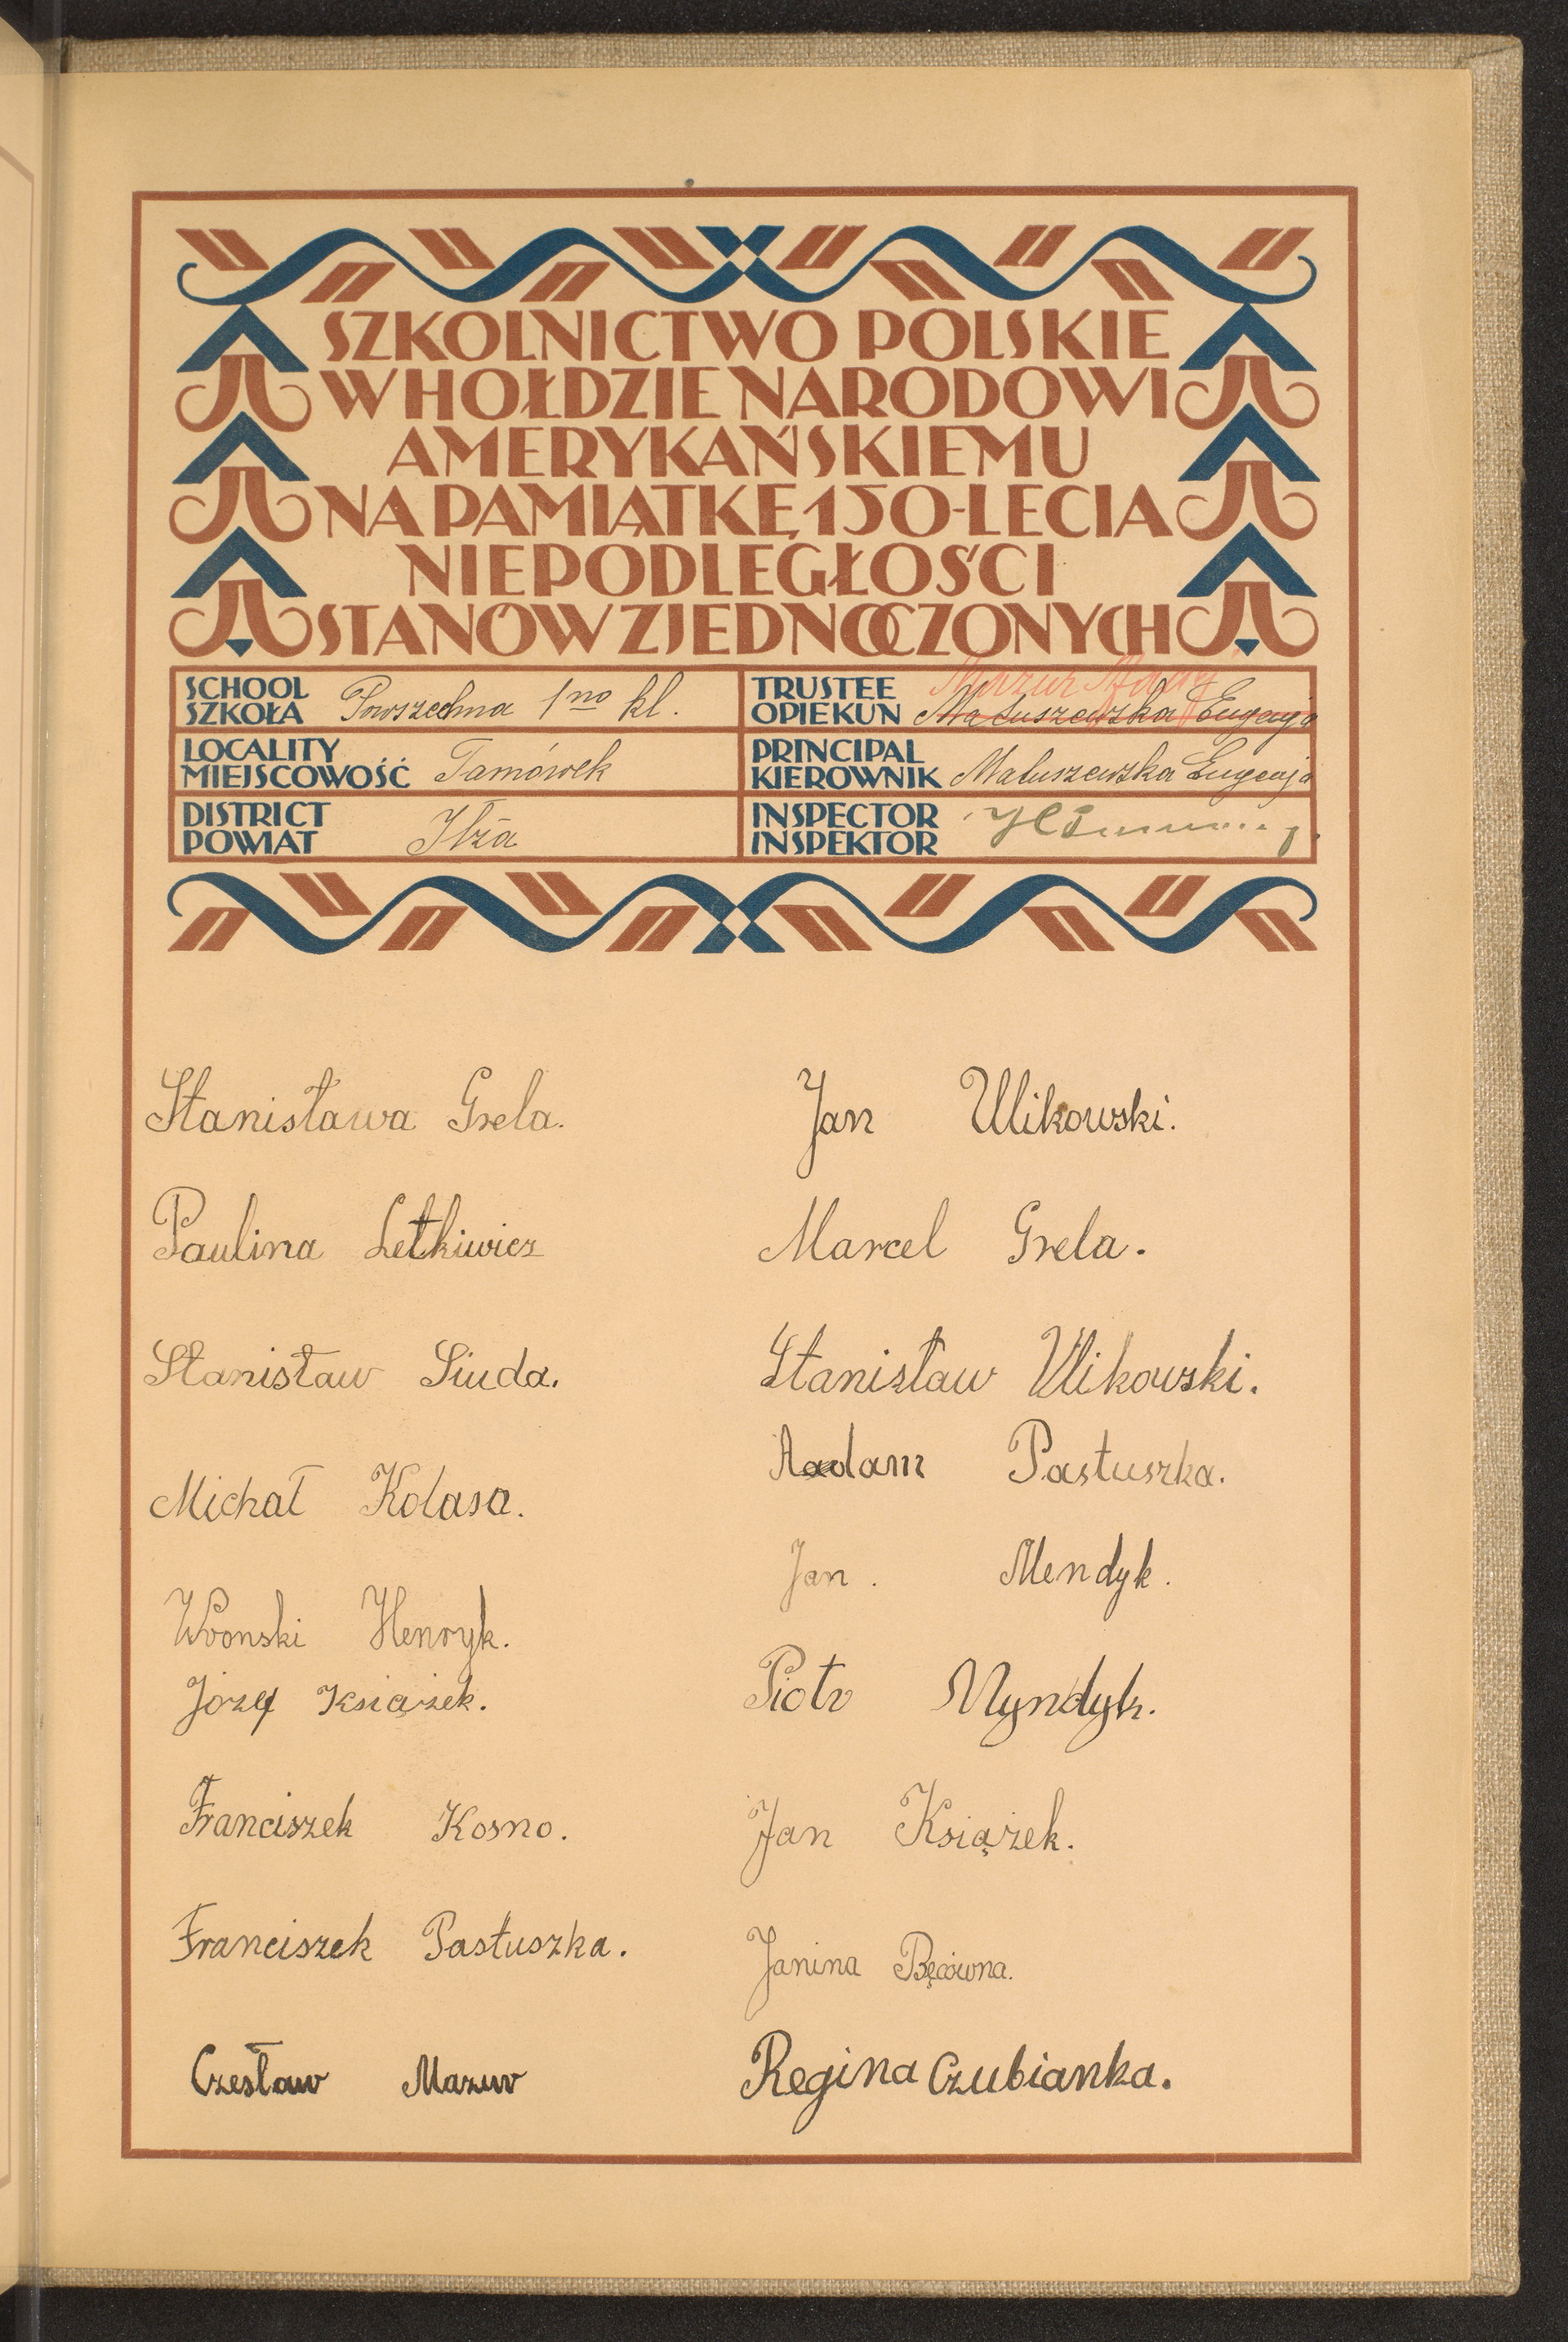 SZKOLNICTWO POLSKIE
W HOŁDZIE NARODOWI
AMERYKAŃSKIEMU
NA PAMIĄTKĘ 150-LECIA
NIEPODLEGŁOŚCI
STANÓW ZJEDNOCZONYCH
SCHOOL
SZKOŁA Powszechna 1no kl.
LOCALITY
MIEJSCOWOŚĆ Tamówek
DISTRICT
POWIAT Iłża
Mazur
TRUSTEE
OPIEKUN Matuszewska Eugenja
PRINCIPAL
KIEROWNIK Matuszewska Eugenja
INSPECTOR
INSPEKTOR
Stanisława Grela.
Paulina Letkiwicz
Stanisław Siuda.
Michał Kolasa.
Wronski Henryk.
Józef Książek.
Franciszek Kosno.
Franciszek Pastuszka.
Czesław Mazur
Jan Ulikowski.
Marcel Grela.
Stanisław Ulikowski.
Aadam Pastuszka.
Jan. Mendyk.
Piotr Myndyk.
Jan Książek.
Janina Bęcówna.
Regina Czubianka.